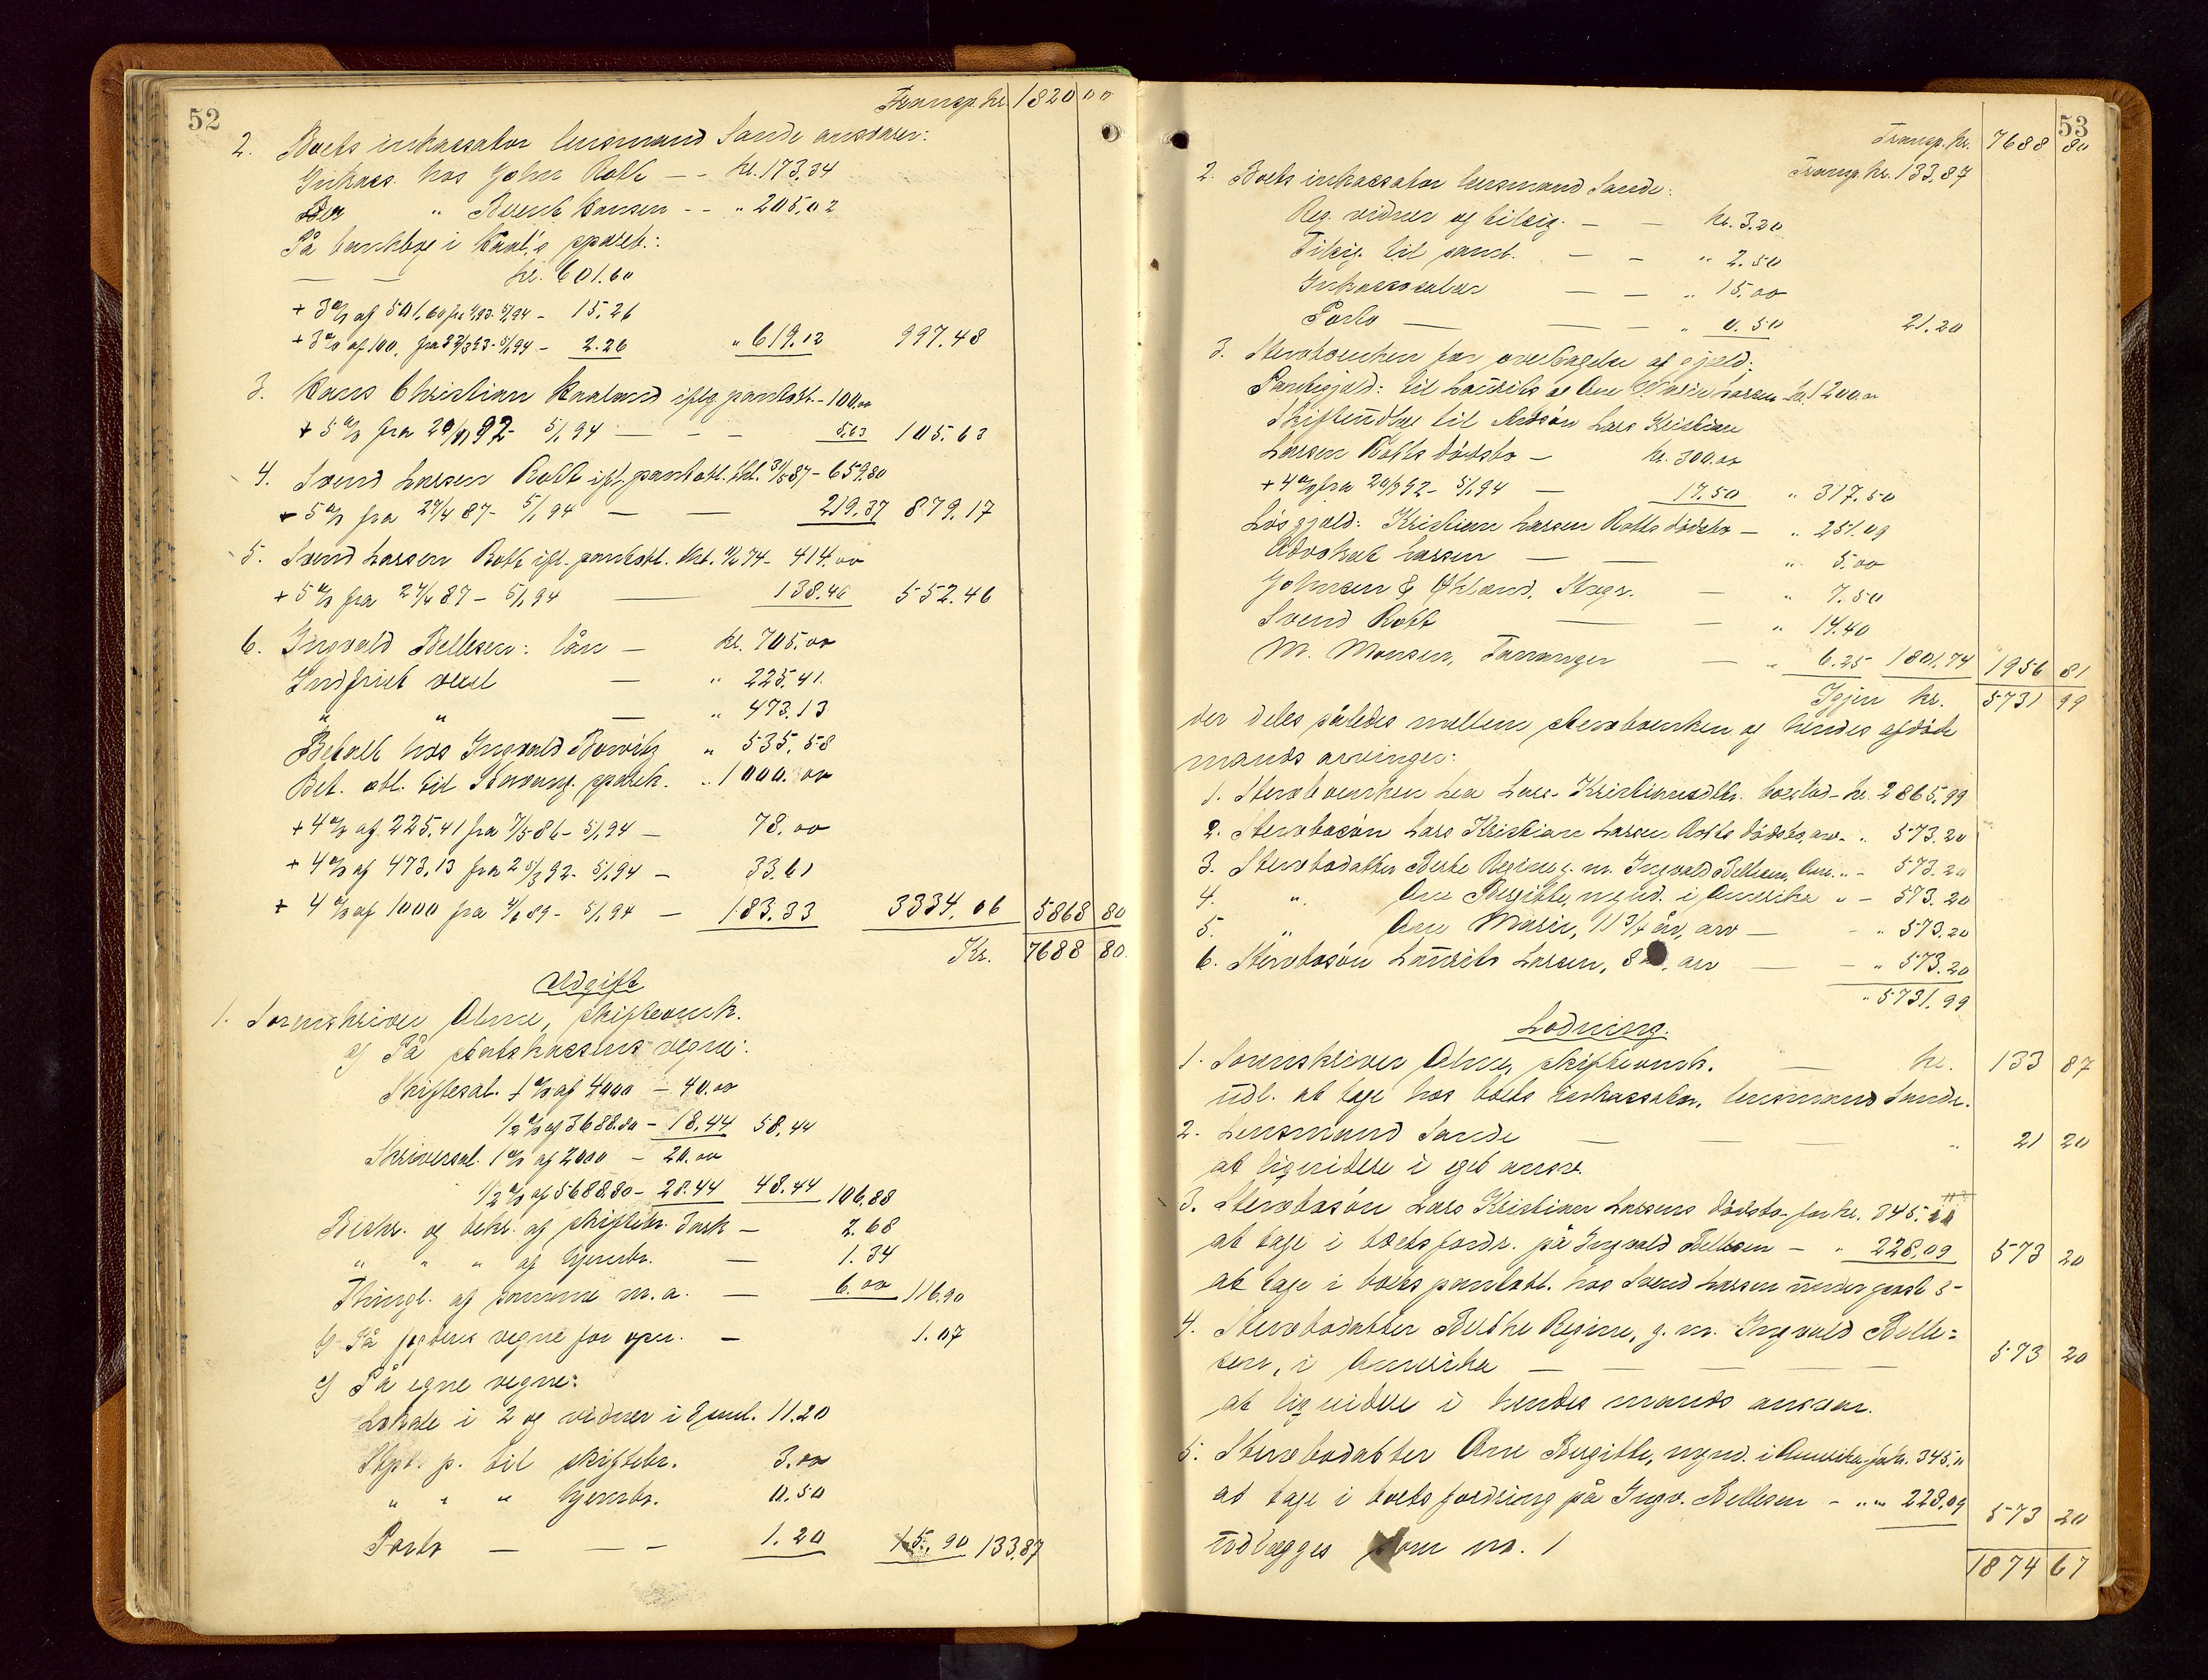 52
Transp. kr. 1820 00
2. Boets inkassator lensmand Sande ansvarer:
Inkass. hos John Rott — - kr. 173.34
Der " Bernt Hansen - - " 205.02
På bankbog i Haal.'s spareb.:
— — kr. 601.60
+ 3% af 501.60 fra 1/1 93 - 5/1 94 - 15.26
+ 3% af 100. fra 22/3 93 - 5/1 94 - 2.26 " 619.12 997.48
3. Hans Christian Haaland iflg. pantobl. - 100.00
+ 5% fra 20/11 92 - 5/1 94 — - - 5.63 105.63
4. Svend Larsen Rott ifl. pantobl. thl. 31/5 87 - 659.80
+ 5% fra 27/4 87 - 5/1 94 — — 219.37 879.17
5. Svend Larsen Rott ifl. pantobl. thl. 74 - 414.00
+ 5% fra 27/4 87 - 5/1 94 — 138.46 552.46
6. Ingvald Bellesen: lån — kr. 705.00
Indfriet vexel — " 225.41
" " — " 473.13
Betalt hos Ingvald Bowitz " 535.58
Bet. obl. til Stavang. spareb. " 1000.00
+ 4% af 225.41 fra 7/5 86 - 5/1 94 — 78.00
+ 4% af 473.13 fra 25/3 92 - 5/1 94 — 33.61
+ 4% af 1000 fra 4/6 89 - 5/1 94 — 183.33 3334.06 5868 80
Kr. 7688 80.
Udgift
1. Sorenskriver Olme, skifteomk.
a) På statskassens vegne:
Skiftesal. 1% af 4000 — 40.00
1/2% af 3688.80 — 18.44 58.44
Skriversal. 1% af 2000 — 20.00
1/2% af 5688.80 — 28.44 48.44 106.88
Beskr. og bekr. af skiftebr. Task — 2.68
" " " af hjembr. — 1.34
Thingl. af samme m.a. — 6.00 116.90
b) På fogdens vegne for opn. — 1.07
c) På egne vegne:
Lokale i 2 og vidner i 2 saml. 11.20
Stpl. p. til skiftebr. 3.00
" " " hjembr. 0.50
Porto — - — 1.20 15.90 133.87
53
Transp. kr. 7688 80
Transp. kr. 133.87
2. Boets inkassator lensmand Sande:
Reg. vidner og tilsig. — — kr. 3.20
Tilsig. til saml. — — " 2.50
Inkassosalær — — " 15.00
Porto — — — " 0.50 21.20
3. Stervboenken for overtagelse af gjæld:
Pantegjæld: til Lauritz og Ane Marie Larsen kr. 1200.00
Skifteudlæg til Stvbsøn Lars Kristian
Larsen Rotts dødsbo — kr. 300.00
+ 4% fra 20/7 92 - 5/1 94 — 17.50 " 317.50
Løs gjæld: Kristian Larsen Rotts dødsbo — " 251.09
Advokat Larsen — — " 5.00
Johnsen & Økland, Skogs. — " 7.50
Svend Rott — — " 14.40
M. Monsen, Tananger — " 6.25 1801.74 1956 81
Igjen kr. 5731 99
der deles således mellem stervboenken og hendes afdøde
mands arvinger:
1. Stervboenken Lea Lars-Kristiansdtr. boeslod - kr. 2865.99
2. Stervbosøn Lars Kristian Larsen Rotts dødsbo, arv - " 573.20
3. Stervbodatter Berte Regine g. m. Ingvald Bellesen, Am. " - 573.20
4. " Ane Bergitte, mynd. i Amerika " - 573.20
5. " Ane Marie, 11 3/4 år, arv — - " 573.20
6. Stervbosøn Lauritz Larsen, 8 , arv — - " 573.20
" 5731.99
Lodning.
1. Sorenskriver Olme, skifteomk. — kr. 133 87
udl. at tage hos boets inkassator, lensmand Sande.
2. Lensmand Sande — — — " 21 20
at liqvidere i eget ansv.
3. Stervbosøn Lars Kristian Larsens dødsbo - for kr. 345.11
at tage i boets fordr. på Ingvald Bellesen — " 228.09 573 20
at tage i boets pantobl. hos Svend Larsen under post 5 -
4. Stervbodatter Berthe Regine, g. m. Ingvald Belle=
sen, i Amerika — — — — 573 20
at liqvidere i hendes mands ansvar.
5. Stervbodatter Ane Bergitte, mynd. i Amerika - for kr. 345.11
at tage i boets fordring på Ingv. Bellesen — " " 228.09 573 20
udlægges som no. 1
1874 67